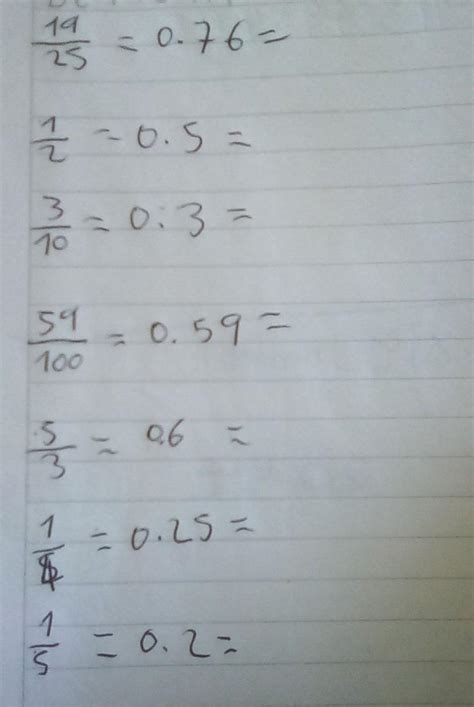 19/25 = 0.76 =
1/2 = 0.5 =
3/10 = 0.3 =
59/100 = 0.59 =
5/3 = 0.6 =
1/4 = 0.25 =
1/5 = 0.2 =